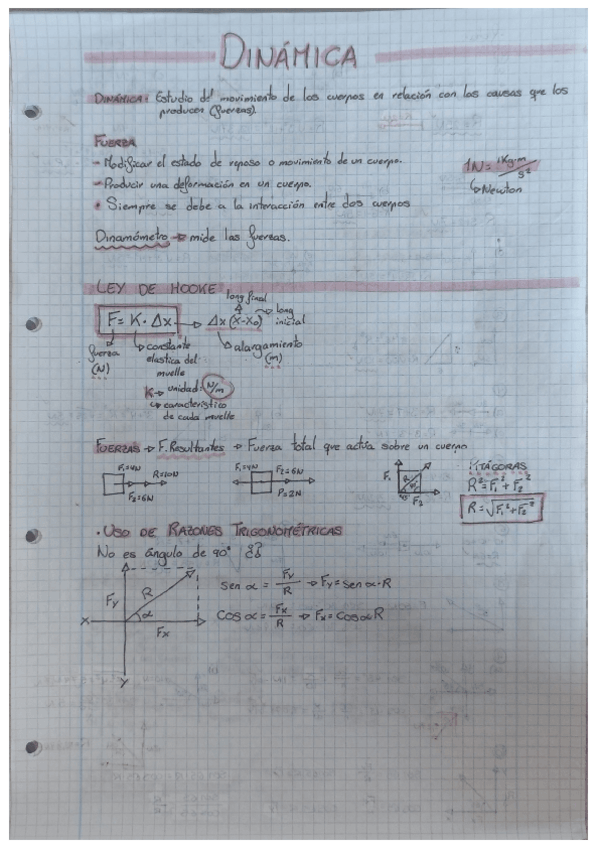 DINÁMICA
DINÁMICA: Estudio del movimiento de los cuerpos en relación con las causas que los
producen (fuerzas).
FUERZA
- Modificar el estado de reposo o movimiento de un cuerpo.
1N = 1Kg·m/s²
↳ Newton
- Producir una deformación en un cuerpo.
• Siempre se debe a la interacción entre dos cuerpos
Dinamómetro → mide las fuerzas.
LEY DE HOOKE
long final
F = K · Δx → Δx (X-X₀) → long inicial
fuerza (N)
↳ constante elastica del muelle
↳ alargamiento (m)
K → unidad: N/m
↳ característico de cada muelle
FUERZAS → F. Resultantes → Fuerza total que actúa sobre un cuerpo
F₁=4N R=10N
F₂=6N
F₁=4N F₂=6N
R=2N
F₁ R
F₂
PITÁGORAS
R²=F₁²+F₂²
R=√F₁²+F₂²
· USO DE RAZONES TRIGONOMÉTRICAS
No es ángulo de 90°
Fy R α
X Fx
Y
Sen α = Fy/R → Fy = sen α · R
Cos α = Fx/R → Fx = Cos α R